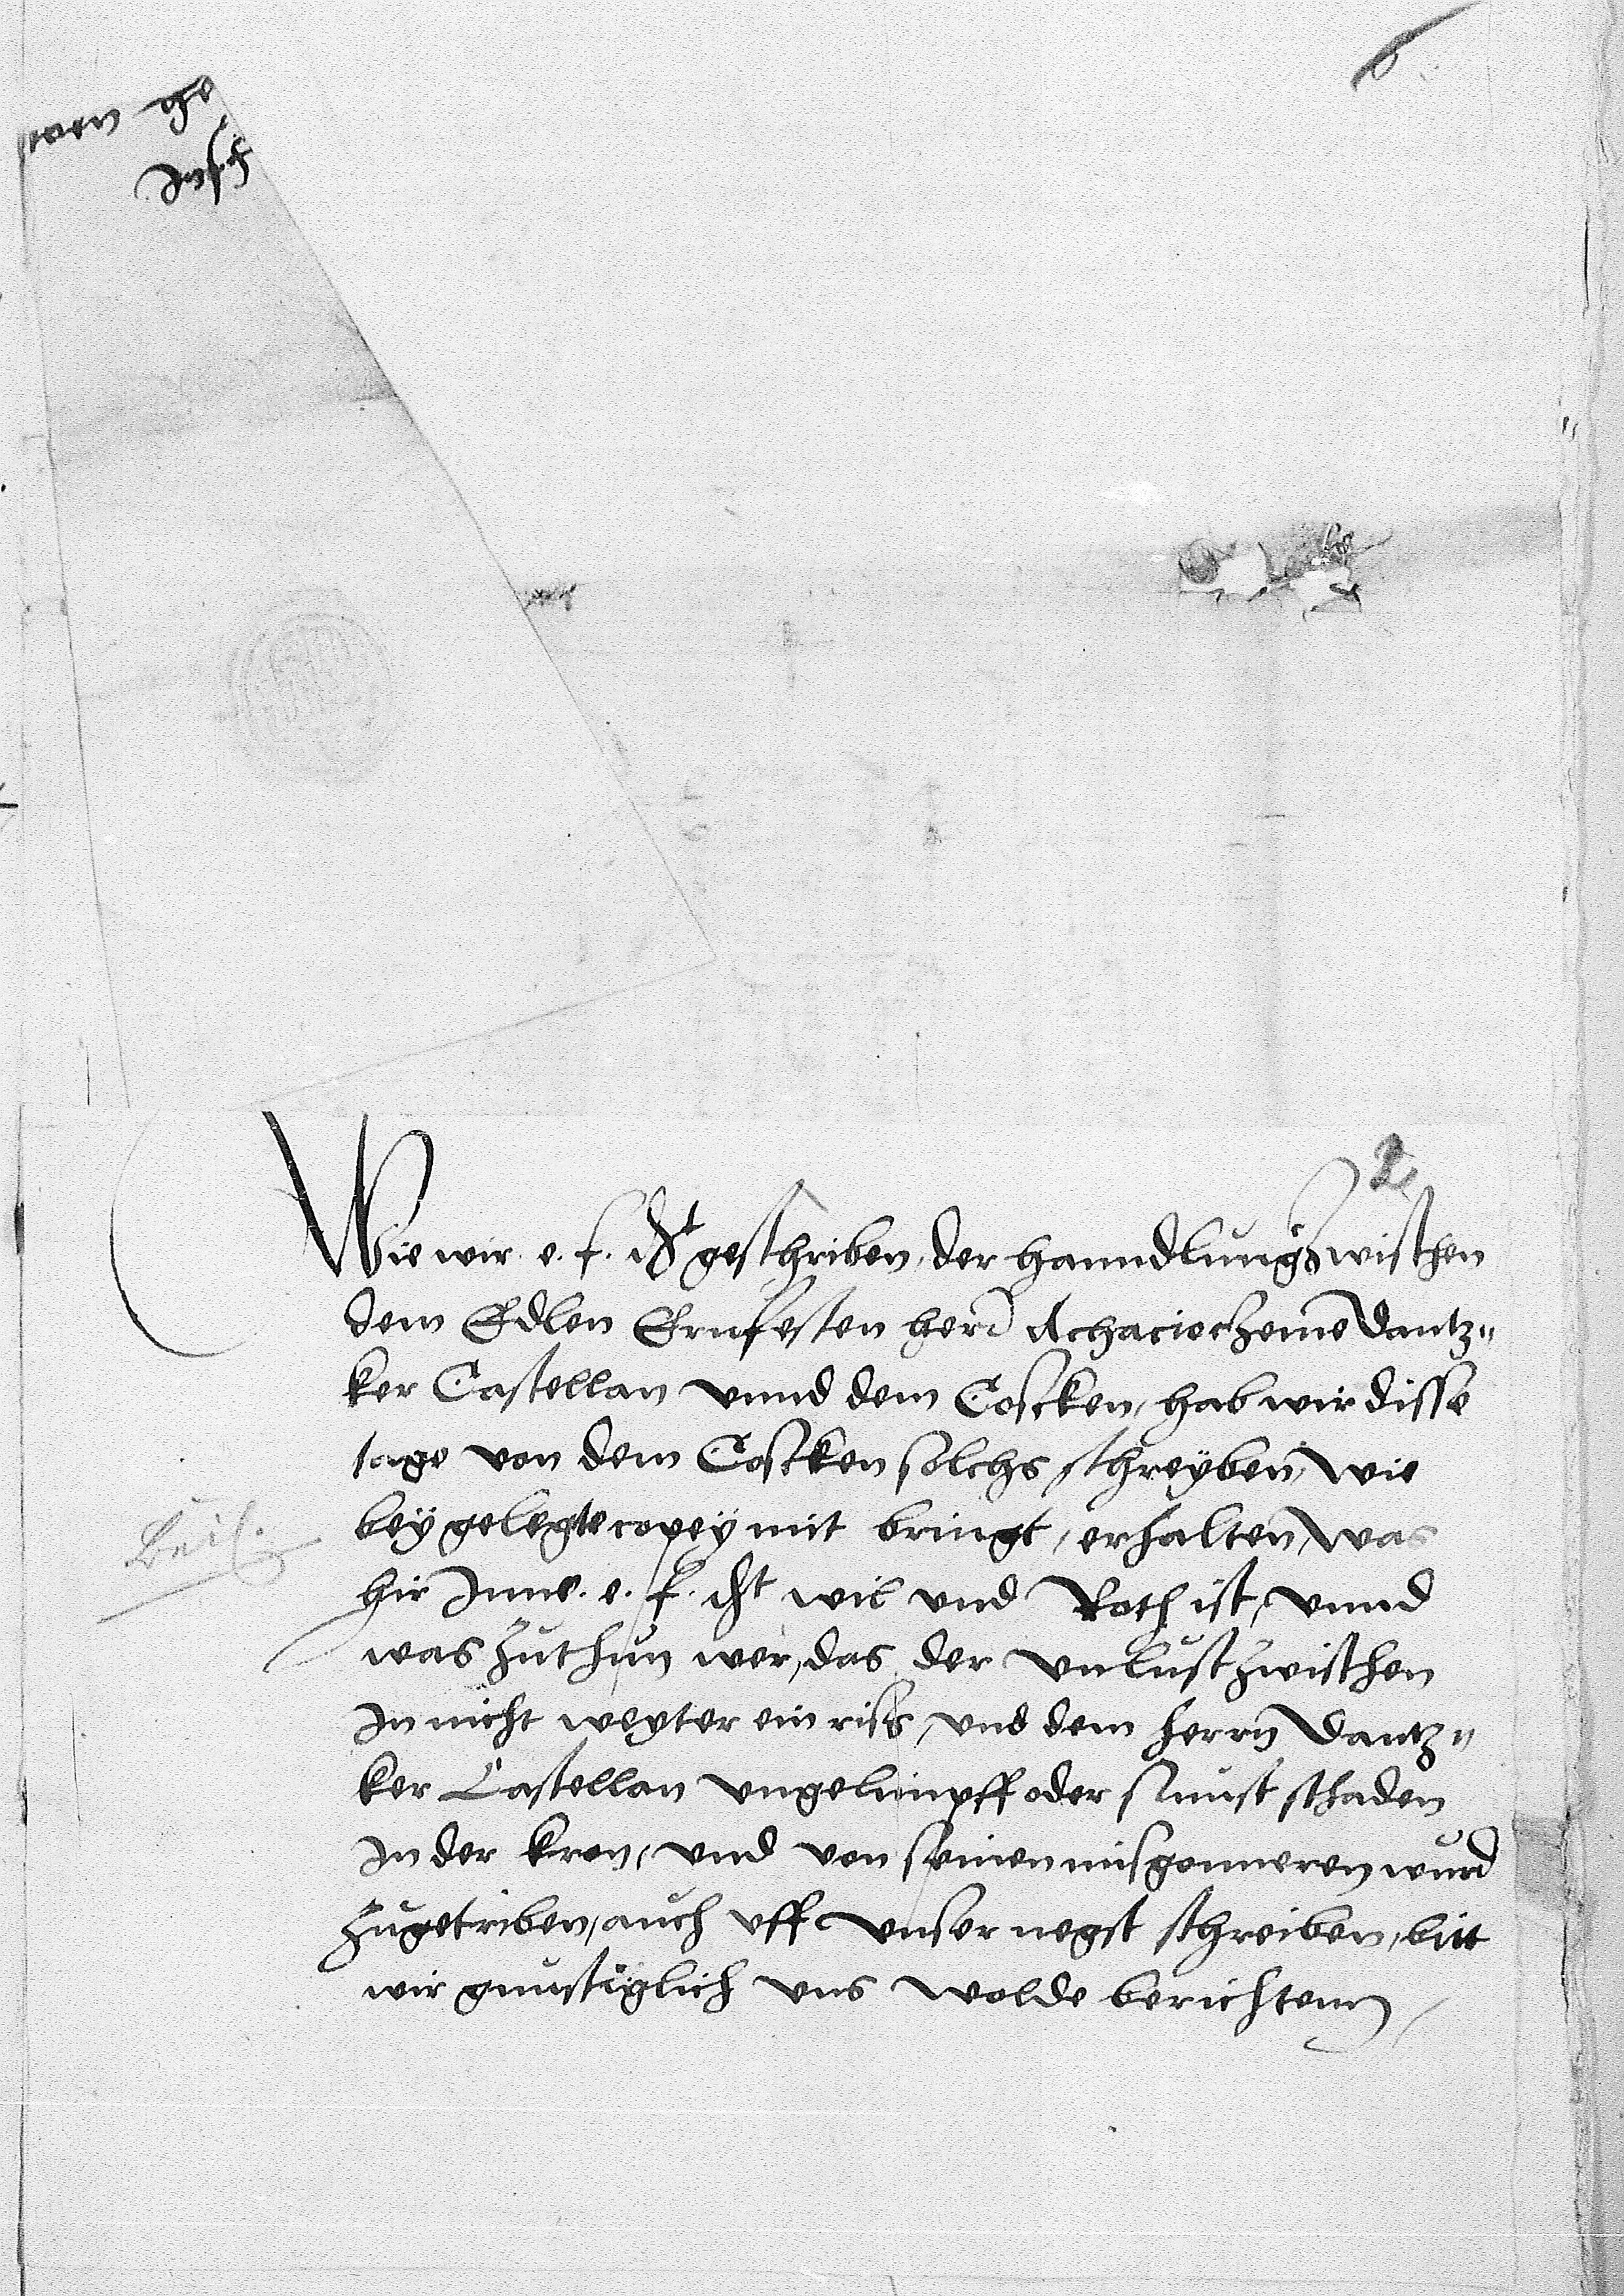 2
Wie wir e. f. dt geschriben, der hanndlung zwischen
dem Edlen Ernfesten hern Achacio Czeme Dantz„
ker Castellan vnnd dem Coscken, hab wir disse
tage von dem Coscken solchs schreyben, wie
beygelegte copey mit bringt, erhalten, was
hir Inne. e. f. dt wil vnd Rath ist, vnnd
was zuthun wer, das der vnlust zwischen
In nicht weyter ein riss, vnd dem herrn Dantz„
ker Castellan vngelimpff oder sunst schaden
In der kron, vnd von seinen misgonneren wurd
zugetriben, auch vff vnser negst schreiben, bitt
wir gunstiglich vns wolde berichtenn
Beil.